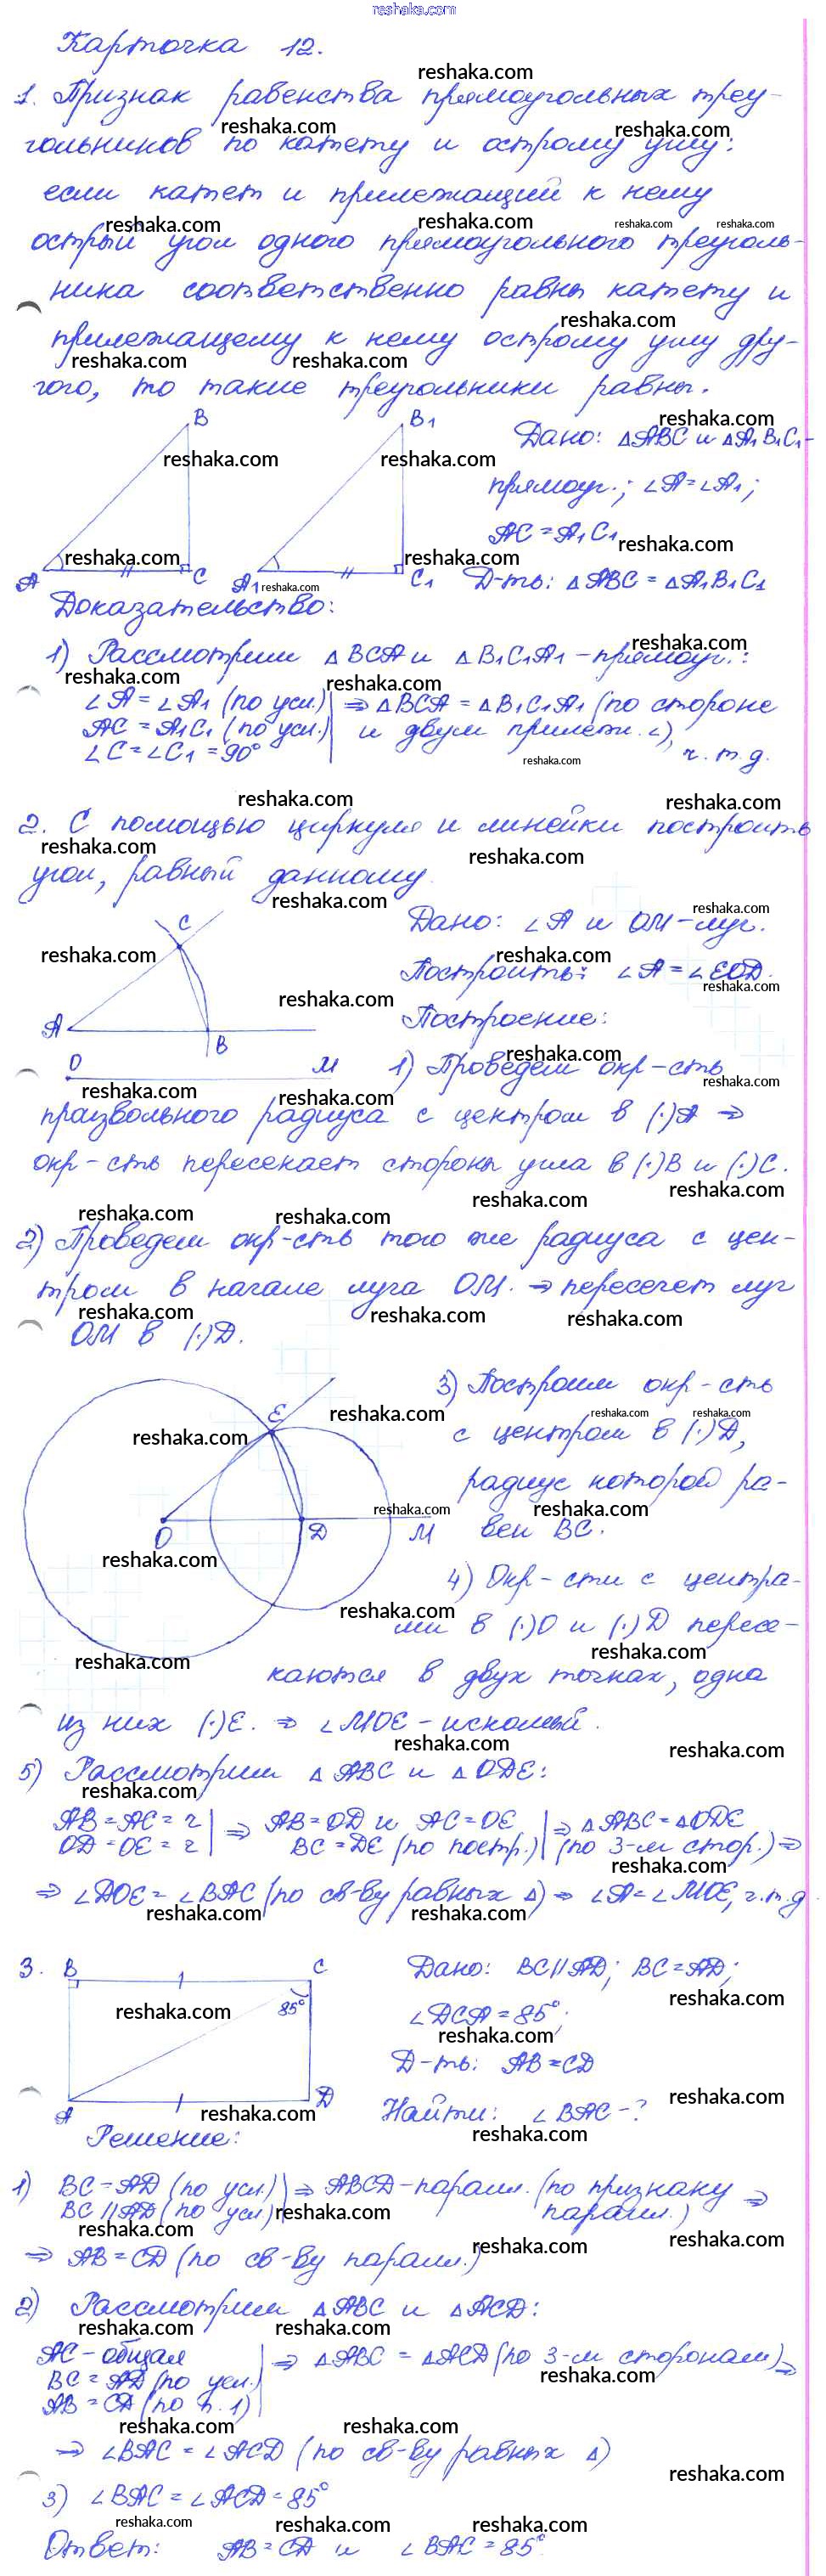 reshaka.com
Карточка 12.
1. Признак равенства прямоугольных треу-
гольников по катету и острому углу:
если катет и прилежащий к нему
острый угол одного прямоугольного треуголь-
ника соответственно равны катету и
прилежащему к нему острому углу дру-
гого, то такие треугольники равны.
B
B1
Дано: ΔABC и ΔA1B1C1 -
прямоуг.; ∠A = ∠A1;
AC = A1C1
A
C
A1
C1
Д-ть: ΔABC = ΔA1B1C1
Доказательство:
1) Рассмотрим ΔBCA и ΔB1C1A1 - прямоуг.:
∠A = ∠A1 (по усл.) | ⇒ ΔBCA = ΔB1C1A1 (по стороне
AC = A1C1 (по усл.) | и двум прилеж. ∠),
∠C = ∠C1 = 90° | ч.т.д.
2. С помощью циркуля и линейки построить
угол, равный данному.
C
Дано: ∠A и OM - луч.
Построить: ∠A = ∠EOD.
A
B
Построение:
O
M
1) Проведем окр-сть
произвольного радиуса с центром в (·)A ⇒
окр-сть пересекает стороны угла в (·)B и (·)C.
2) Проведем окр-сть того же радиуса с цен-
тром в начале луча OM. ⇒ пересечет луч
OM в (·)D.
3) Построим окр-сть
E
с центром в (·)D,
радиус которой ра-
O
D
M
вен BC.
4) Окр-сти с центра-
ми в (·)O и (·)D пересе-
каются в двух точках, одна
из них (·)E. ⇒ ∠MOE - искомый.
5) Рассмотрим ΔABC и ΔODE:
AB = AC = r | ⇒ AB = OD и AC = OE | ⇒ ΔABC = ΔODE
OD = OE = r | BC = DE (по постр.) | (по 3-м стор.) ⇒
⇒ ∠DOE = ∠BAC (по св-ву равных Δ) ⇒ ∠A = ∠MOE, ч.т.д.
3.
B
C
85°
A
D
Дано: BC || AD; BC = AD;
∠DCA = 85°;
Д-ть: AB = CD
Найти: ∠BAC - ?
Решение:
1) BC = AD (по усл.) | ⇒ ABCD - паралл. (по признаку
BC || AD (по усл.) | паралл.) ⇒
⇒ AB = CD (по св-ву паралл.)
2) Рассмотрим ΔABC и ΔACD:
AC - общая | ⇒ ΔABC = ΔACD (по 3-м сторонам) ⇒
BC = AD (по усл.)
AB = CD (по п. 1)
⇒ ∠BAC = ∠ACD (по св-ву равных Δ)
3) ∠BAC = ∠ACD = 85°
Ответ: AB = CD и ∠BAC = 85°